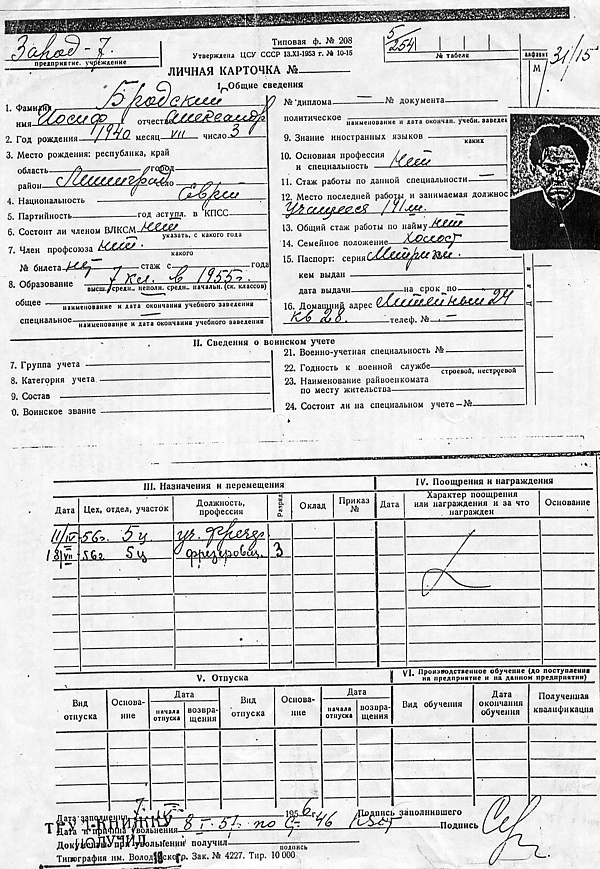 Типовая ф. № 208
Утверждена ЦСУ СССР 13.XI-1953 г. № 10-15
5/254
№ табеля
алфавит
М
31/15
Завод - 7.
предприятие. учреждение
ЛИЧНАЯ КАРТОЧКА №
I. Общие сведения
1. Фамилия Бродский
имя Иосиф отчество Александр
2. Год рождения 1940 месяц VII число 3
3. Место рождения: республика, край
область город
район Ленинград
4. Национальность Еврей
5. Партийность год вступл. в КПСС
6. Состоит ли членом ВЛКСМ нет
указать, с какого года
7. Член профсоюза нет.
какого
№ билета нет стаж с года
8. Образование 7 кл. в 1955 г.
высш. средн., неполн. средн. начальн. (ск. классов)
общее
наименование и дата окончания учебного заведения
специальное
наименование и дата окончания учебного заведения
№ диплома № документа
политическое
наименование и дата окончан. учебн. заведе
9. Знание иностранных языков
каких
10. Основная профессия
и специальность нет
11. Стаж работы по данной специальности
12. Место последней работы и занимаемая должнос
Учащегося
13. Общий стаж работы по найму нет
14. Семейное положение Холост
15. Паспорт: серия Метрики.
кем выдан
дата выдачи на срок по
16. Домашний адрес Литейный 24
кв 28. телеф. № -
II. Сведения о воинском учете
7. Группа учета
8. Категория учета
9. Состав
0. Воинское звание
21. Военно-учетная специальность №
22. Годность к военной службе
строевой, нестроевой
23. Наименование райвоенкомата
по месту жительства
24. Состоит ли на специальном учете — №
III. Назначения и перемещения
IV. Поощрения и награждения
Дата Цех, отдел, участок Должность, профессия Разряд Оклад Приказ № Дата Характер поощрения или награждения и за что награжден Основание
11/IV 56г. 5ц уч. фрезер
18/VII 56г 5ц фрезеровщ 3
V. Отпуска
VI. Производственное обучение (до поступления на предприятие и на данном предприятии)
Вид отпуска Основание Дата Вид отпуска Основание Дата Вид обучения Дата окончания обучения Полученная квалификация
начала отпуска возвращения начала отпуска возвращения
Дата заполнения 7. 1956 г. Подпись заполнившего
Дата и причина увольнения 8 I. 57. по ст. 46 КЗоТ Подпись
ТРУД. КНИЖКУ
ПОЛУЧИЛ
19 г.
Документы при увольнении получил
подпись
Типография им. Володарского. Зак. № 4227. Тир. 10 000